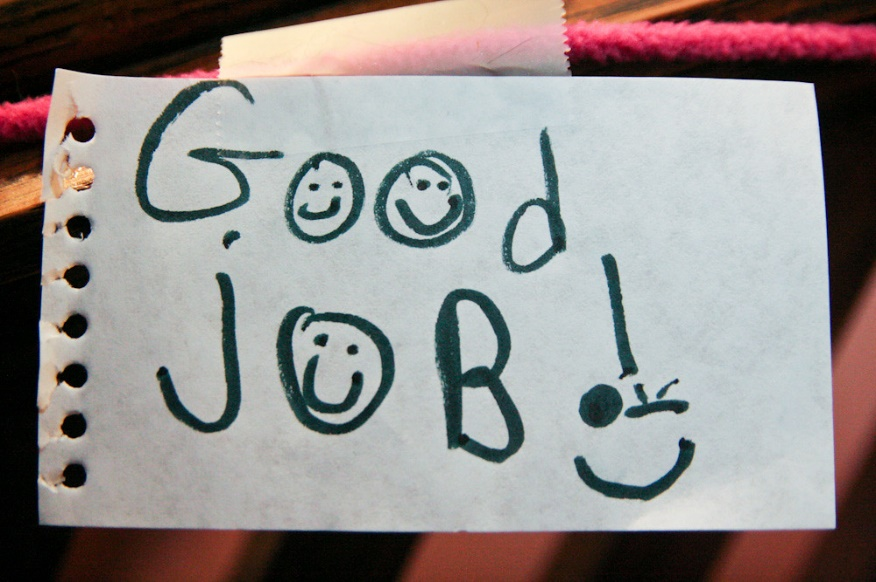 Good
JOB!